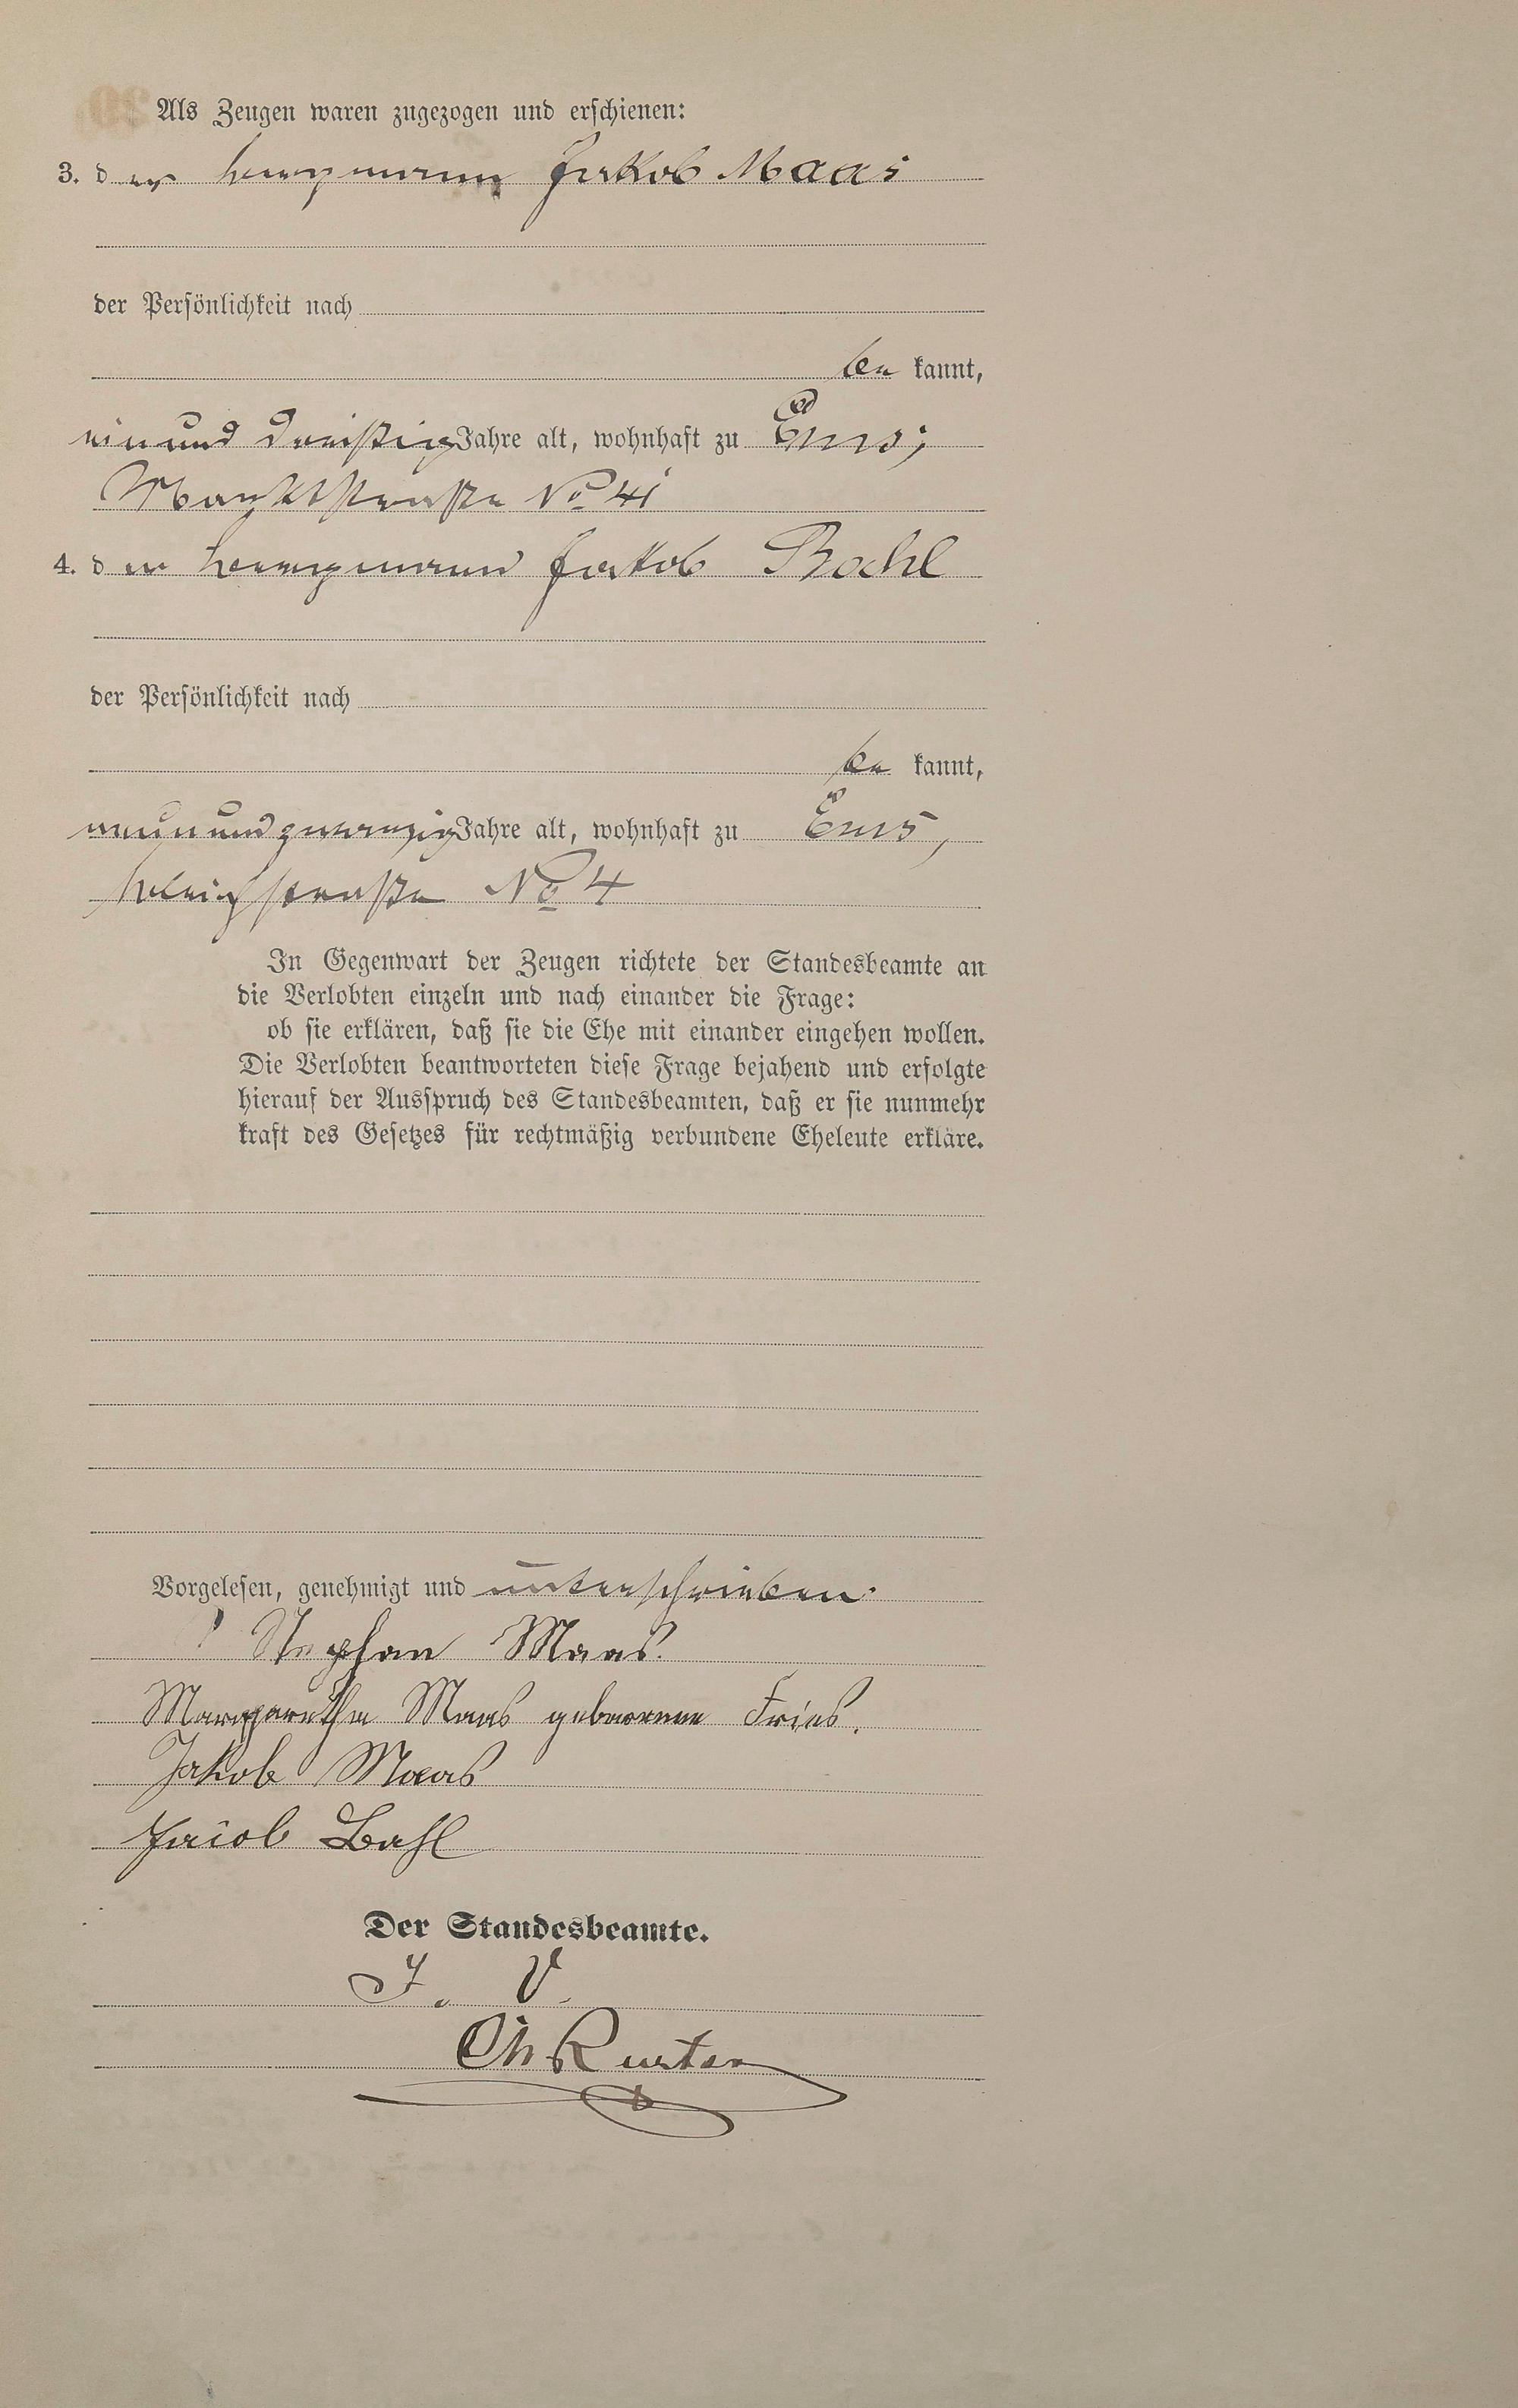 Als Zeugen waren zugezogen und erschienen:
3. der Bergmann Jakob Maas
der Persönlichkeit nach
be kannt,
ein und dreißig Jahre alt, wohnhaft zu Ems,
Marktstraße No 41
4. der Bergmann Jakob Bahl
der Persönlichkeit nach
be kannt,
neun und zwanzig Jahre alt, wohnhaft zu Ems,
Bleichstraße No 4
In Gegenwart der Zeugen richtete der Standesbeamte an
die Verlobten einzeln und nach einander die Frage:
ob sie erklären, daß sie die Ehe mit einander eingehen wollen.
Die Verlobten beantworteten diese Frage bejahend und erfolgte
hierauf der Ausspruch des Standesbeamten, daß er sie nunmehr
kraft des Gesetzes für rechtmäßig verbundene Eheleute erkläre.
Vorgelesen, genehmigt und unterschrieben
Stephan Maas.
Margarethe Maas geborene Fries.
Jakob Maas
Jacob Bahl
Der Standesbeamte.
J. V.